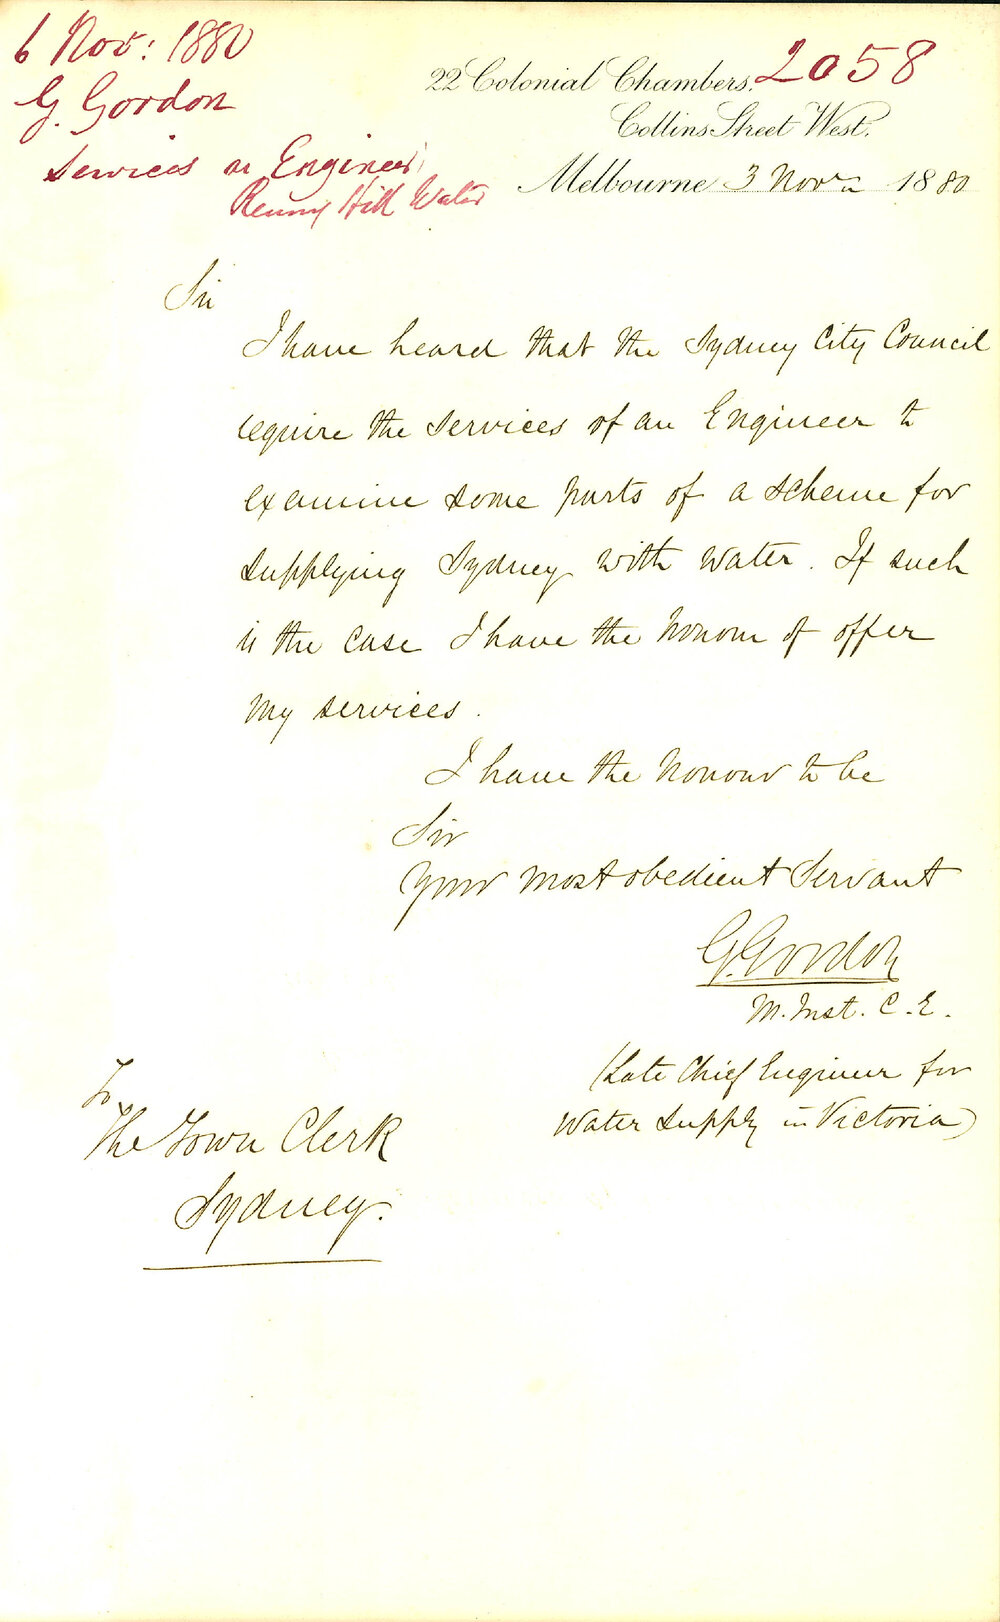 6 Nov: 1880
G. Gordon
Services as Engineer
Kenny Hill Water
2058
22 Colonial Chambers.
Collins Street West.
Melbourne 3 Novr 1880
Sir
I have heard that the Sydney City Council
require the services of an Engineer to
examine some parts of a scheme for
supplying Sydney with water. If such
is the case I have the honour of offer
my services.
I have the honour to be
Sir
Your most obedient Servant
G. Gordon
M. Inst. C. E.
(Late Chief Engineer for
Water Supply in Victoria)
To
The Town Clerk
Sydney.